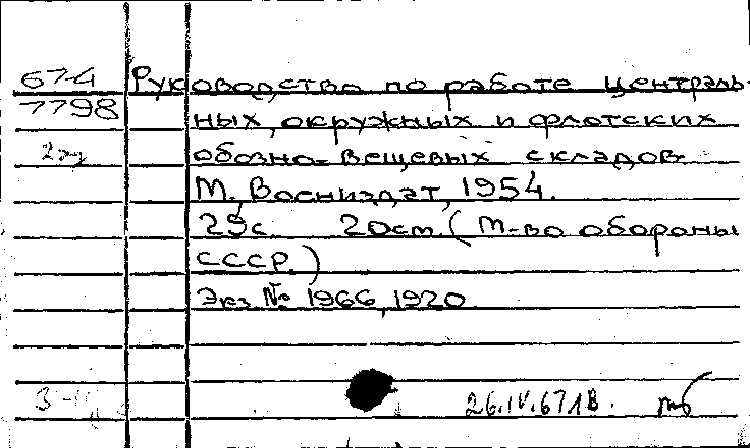 67-4 Руководство по работе централь-
7798 ных, окружных и флотских
2 экз обозно-вещевых складов.
М., Воениздат, 1954.
29с. 20см. (М-во обороны
СССР.)
Экз. № 1966, 1920
26.IV.67